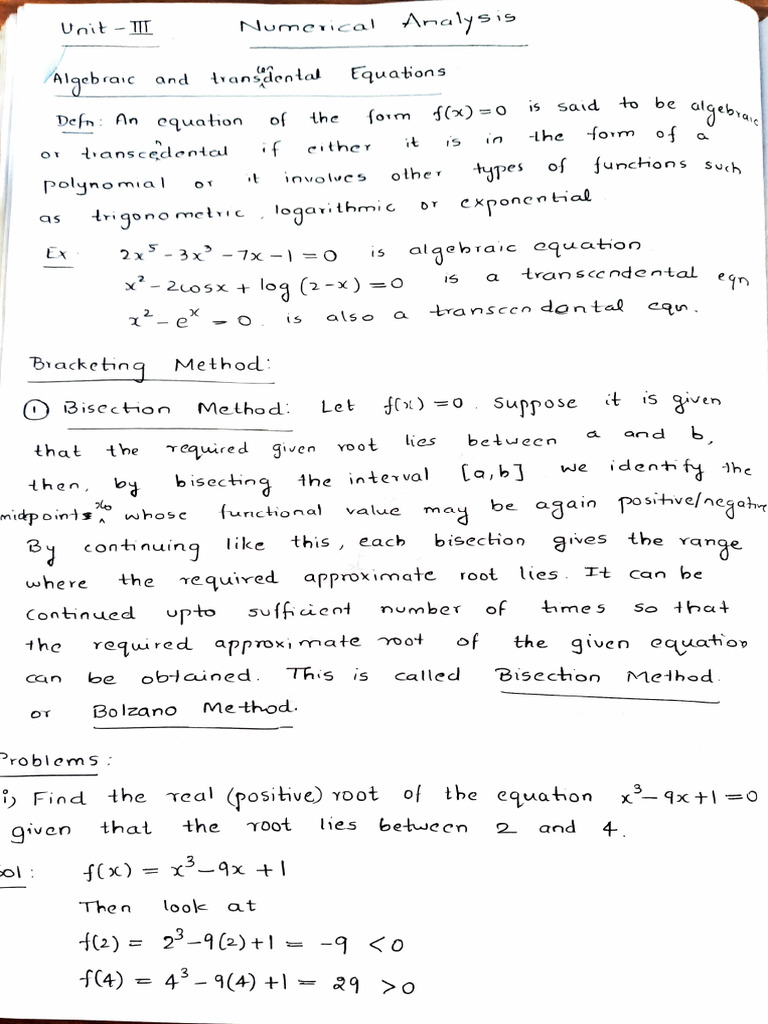 Unit - III Numerical Analysis
Algebraic and transcendental Equations
Defn: An equation of the form f(x)=0 is said to be algebraic
or transcendental if either it is in the form of a
polynomial or it involves other types of functions such
as trigonometric, logarithmic or exponential
Ex 2x⁵ - 3x³ - 7x - 1 = 0 is algebraic equation
x² - 2cosx + log (2-x) = 0 is a transcendental eqn
x² - eˣ = 0. is also a transcendental eqn.
Bracketing Method:
① Bisection Method: Let f(x) = 0. Suppose it is given
that the required given root lies between a and b,
then, by bisecting the interval [a,b] we identify the
midpoints x₀ whose functional value may be again positive/negative
By continuing like this, each bisection gives the range
where the required approximate root lies. It can be
continued upto sufficient number of times so that
the required approximate root of the given equation
can be obtained. This is called Bisection Method.
or Bolzano Method.
Problems:
i) Find the real (positive) root of the equation x³ - 9x + 1 = 0
given that the root lies between 2 and 4.
Sol: f(x) = x³ - 9x + 1
Then look at
f(2) = 2³ - 9(2) + 1 = -9 < 0
f(4) = 4³ - 9(4) + 1 = 29 > 0